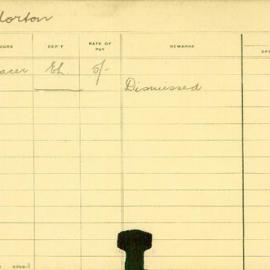 Morton
OURS DEP'T RATE OF PAY REMARKS
acer Eh 6/-
Dismissed